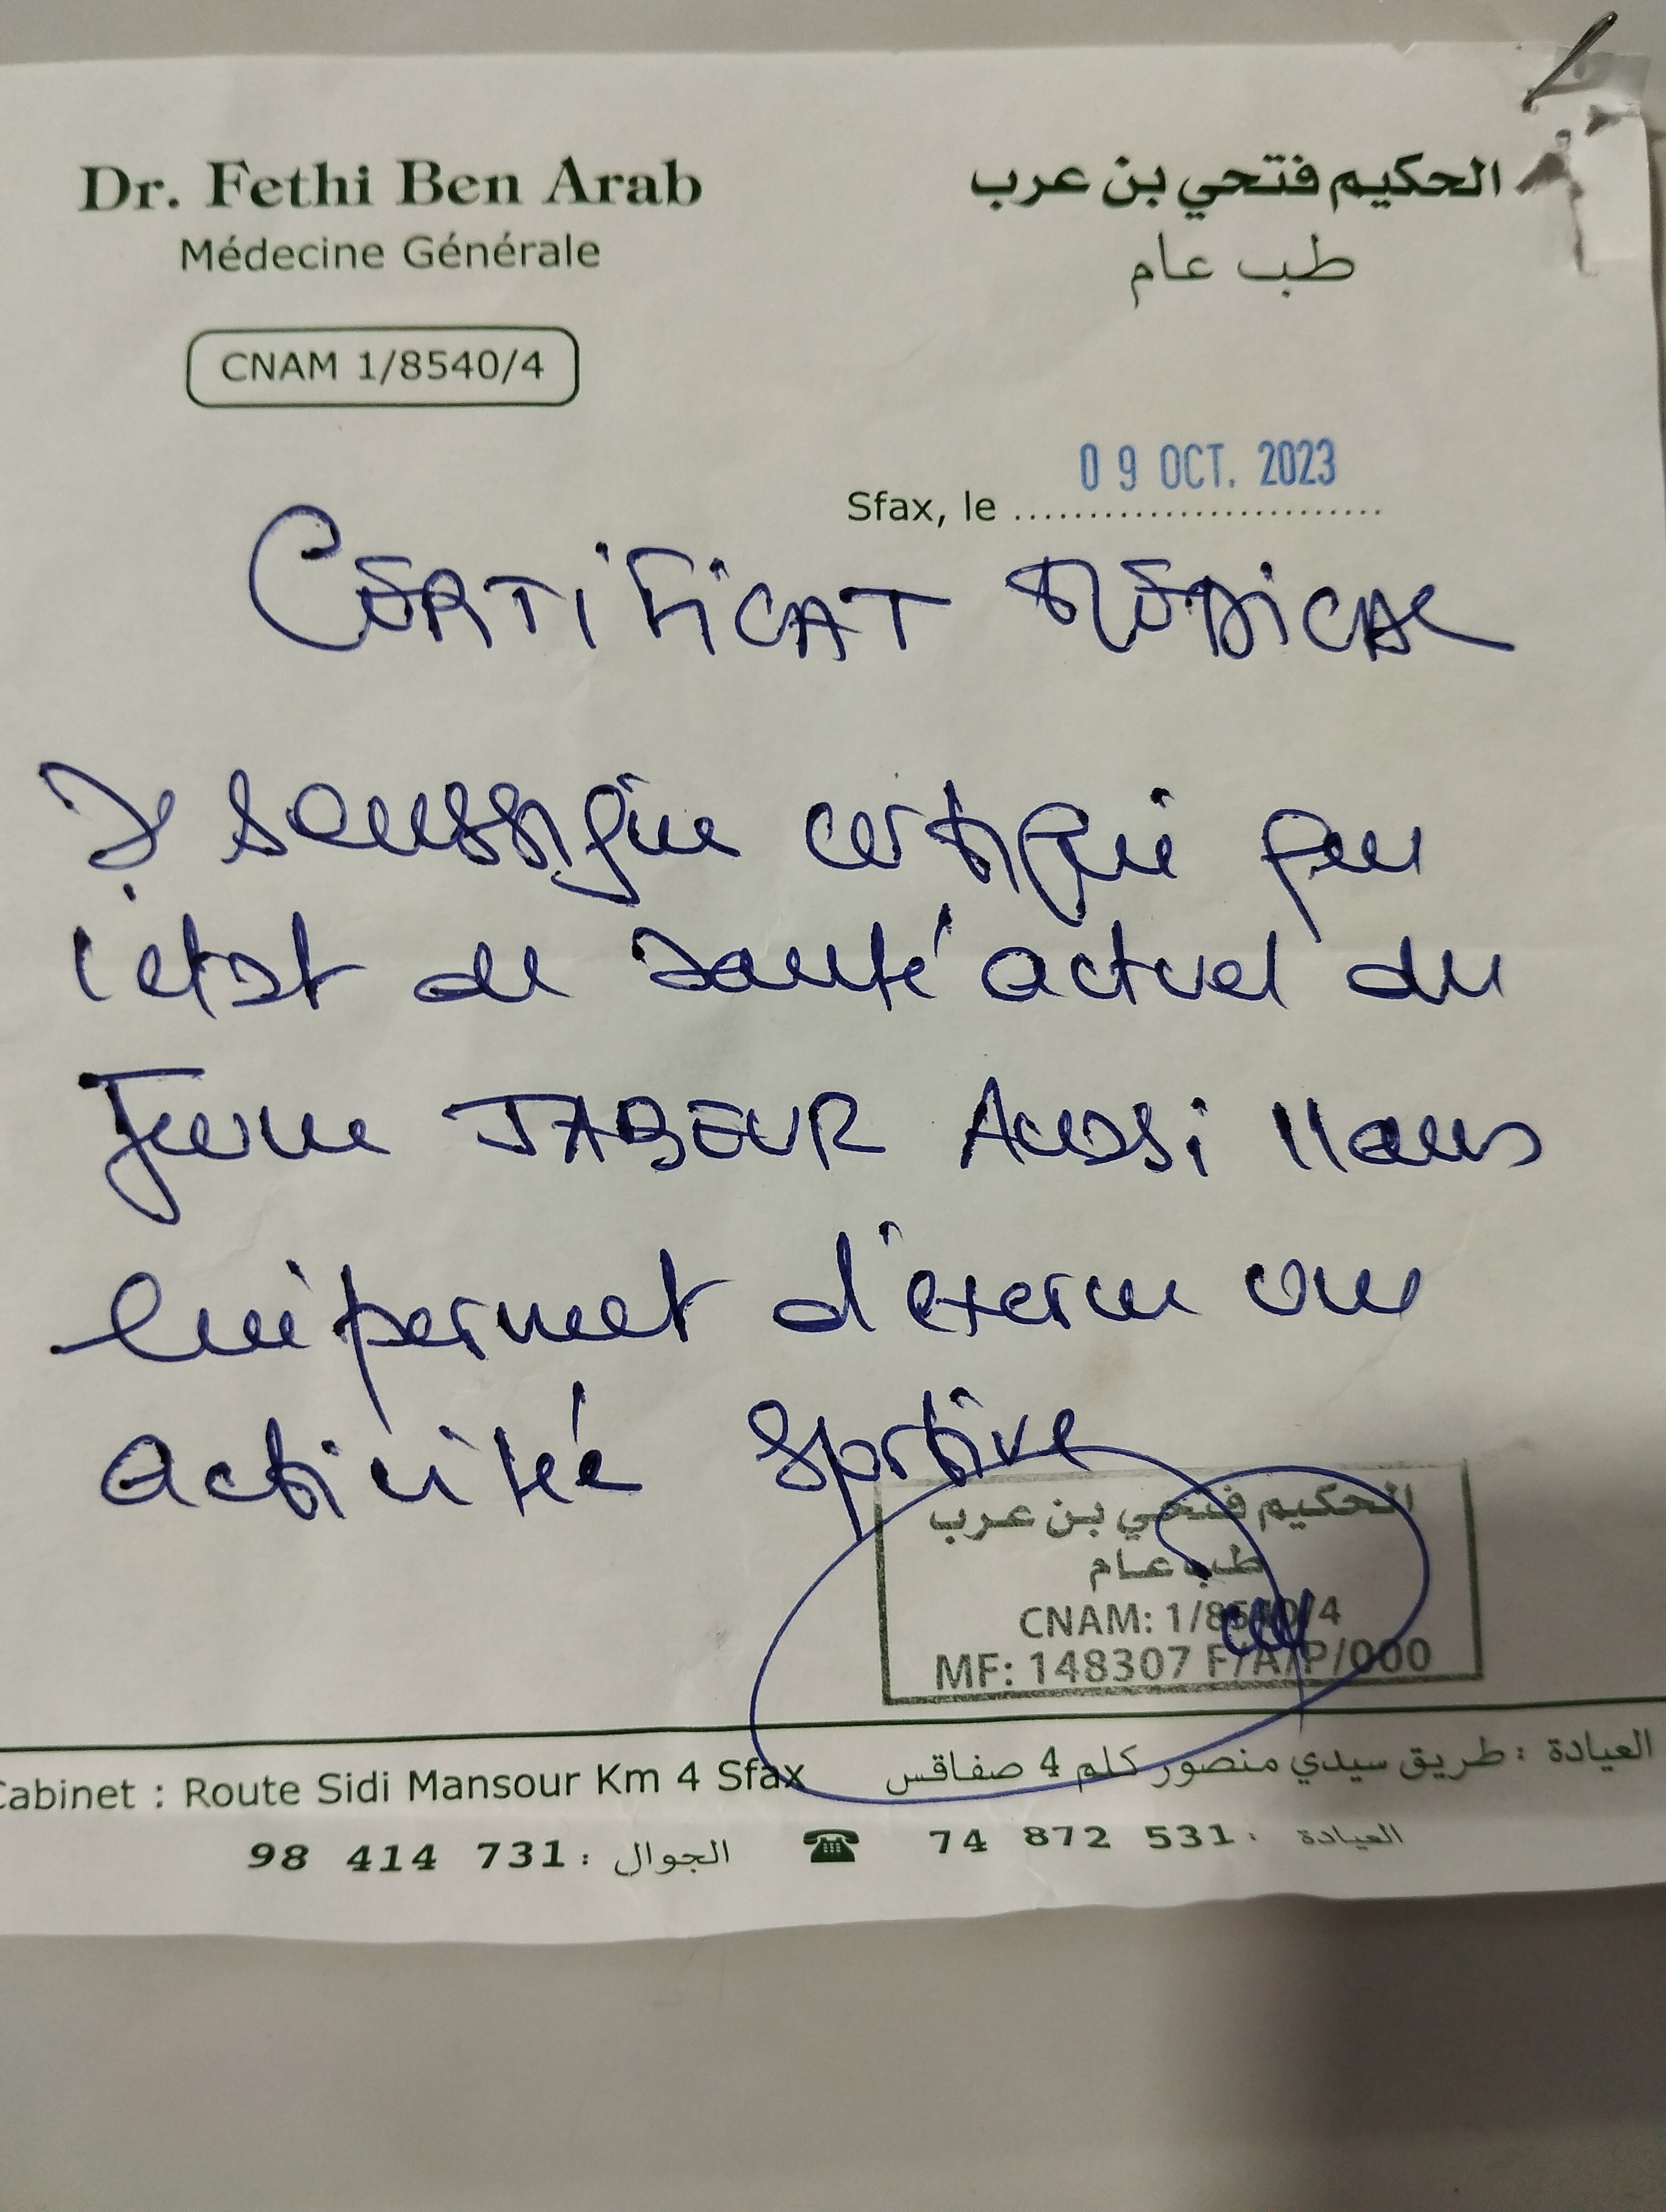 Dr. Fethi Ben Arab
Médecine Générale
CNAM 1/8540/4
الحكيم فتحي بن عرب
طب عام
Sfax, le 09 OCT. 2023
CERTIFICAT MÉDICAL
Je soussigné certifie que
l'état de santé actuel du
Jeune JABEUR
lui permet d'exercer une
activitée sportive
الحكيم فتحي بن عرب
طب عام
CNAM: 1/8540/4
MF: 148307 F/A/P/000
Cabinet : Route Sidi Mansour Km 4 Sfax
العيادة : طريق سيدي منصور كلم 4 صفاقس
الجوال : 98 414 731
العيادة : 74 872 531